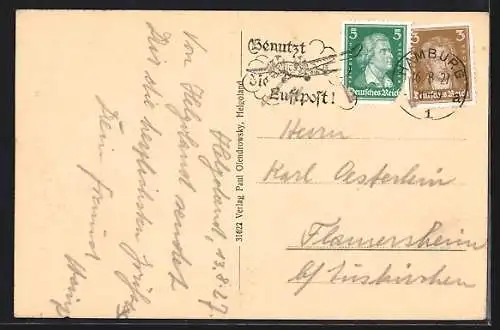 Helgoland, 13.8.27.
Von Helgoland sendet
Dir die herzlichsten Grüße
Dein Freund
Heinz
31622 Verlag Paul Olendrowsky, Helgoland
Benutzt
die
Luftpost!
5 5
Deutsches Reich
3 3
Deutsches Reich
HAMBURG
1
Herrn
Karl Oesterlein
Flamersheim
b/ Euskirchen